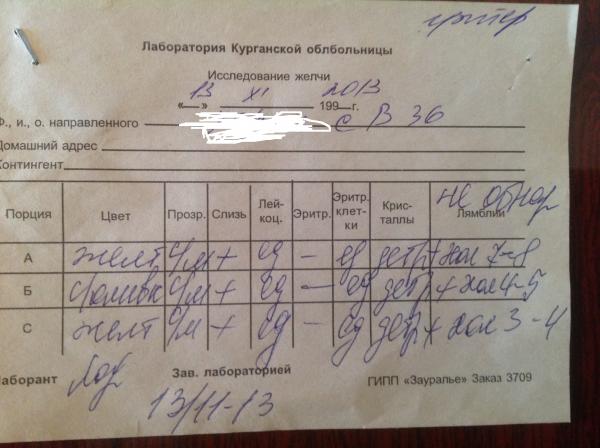 Лаборатория Курганской облбольницы
Исследование желчи
« 13 » XI 2013 199 г.
Ф., и., о. направленного с В 36
Домашний адрес
Контингент
Порция Цвет Прозр. Слизь Лей-коц. Эритр. Эритр. клет-ки Крис-таллы Лямблии не обнар
А желт ч/м + ед — ед детр + хол 7-8
Б ч/м + ед — ед детр + хол 4-5
С желт ч/м + ед — ед детр + хол 3-4
Лаборант Зав. лабораторией ГИПП «Зауралье» Заказ 3709
13/11-13